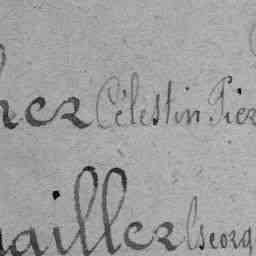 her Célestin Pier
ailler Georg